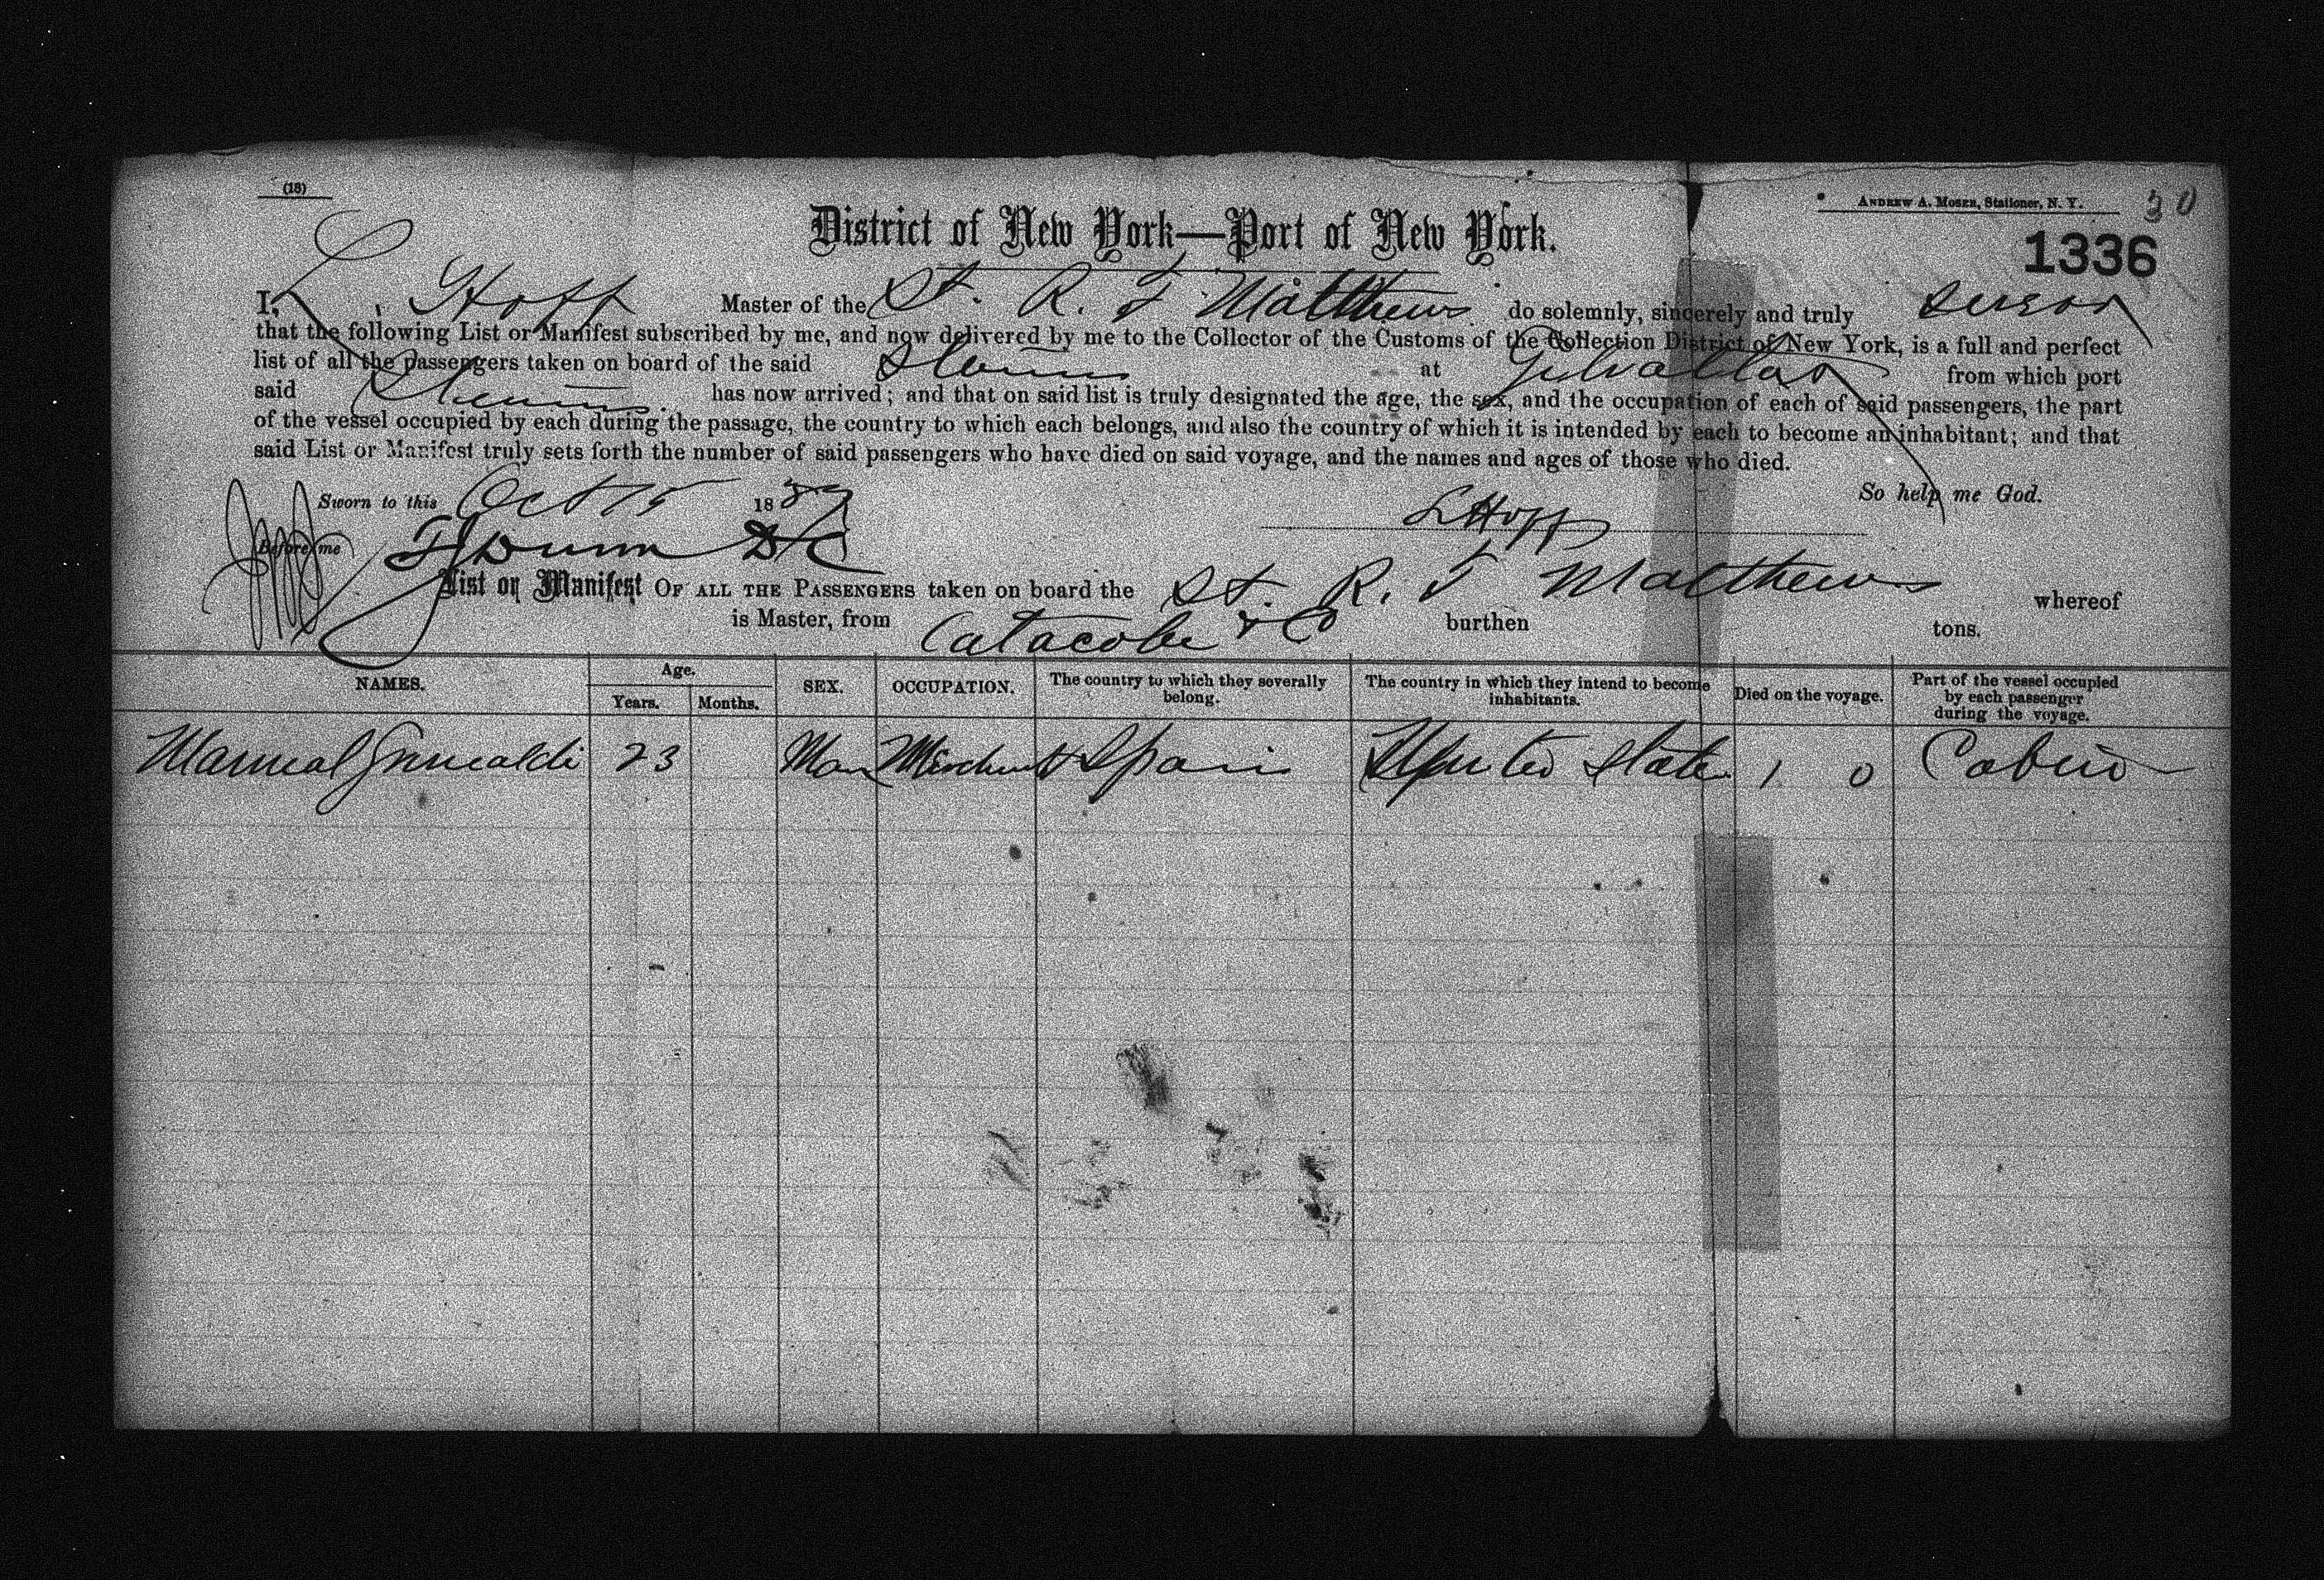 (18)
ANDREW A. MOSER, Stationer, N. Y.
30
District of New York—Port of New York.
1336
I, L. Hoff Master of the St. R. F Matthews do solemnly, sincerely and truly swear
that the following List or Manifest subscribed by me, and now delivered by me to the Collector of the Customs of the Collection District of New York, is a full and perfect
list of all the passengers taken on board of the said at from which port
said has now arrived; and that on said list is truly designated the age, the sex, and the occupation of each of said passengers, the part
of the vessel occupied by each during the passage, the country to which each belongs, and also the country of which it is intended by each to become an inhabitant; and that
said List or Manifest truly sets forth the number of said passengers who have died on said voyage, and the names and ages of those who died.
So help me God.
Sworn to this Oct 15 1889
L Hoff
Before me Dunn D/C
List or Manifest OF ALL THE PASSENGERS taken on board the St. R. F Matthews whereof
is Master, from burthen tons.
NAMES. Age. SEX. OCCUPATION. The country to which they severally belong. The country in which they intend to become inhabitants. Died on the voyage. Part of the vessel occupied by each passenger during the voyage.
Years. Months.
Manual Grimaldi 23 Man Merchant Spain United States 1 0 Cabin